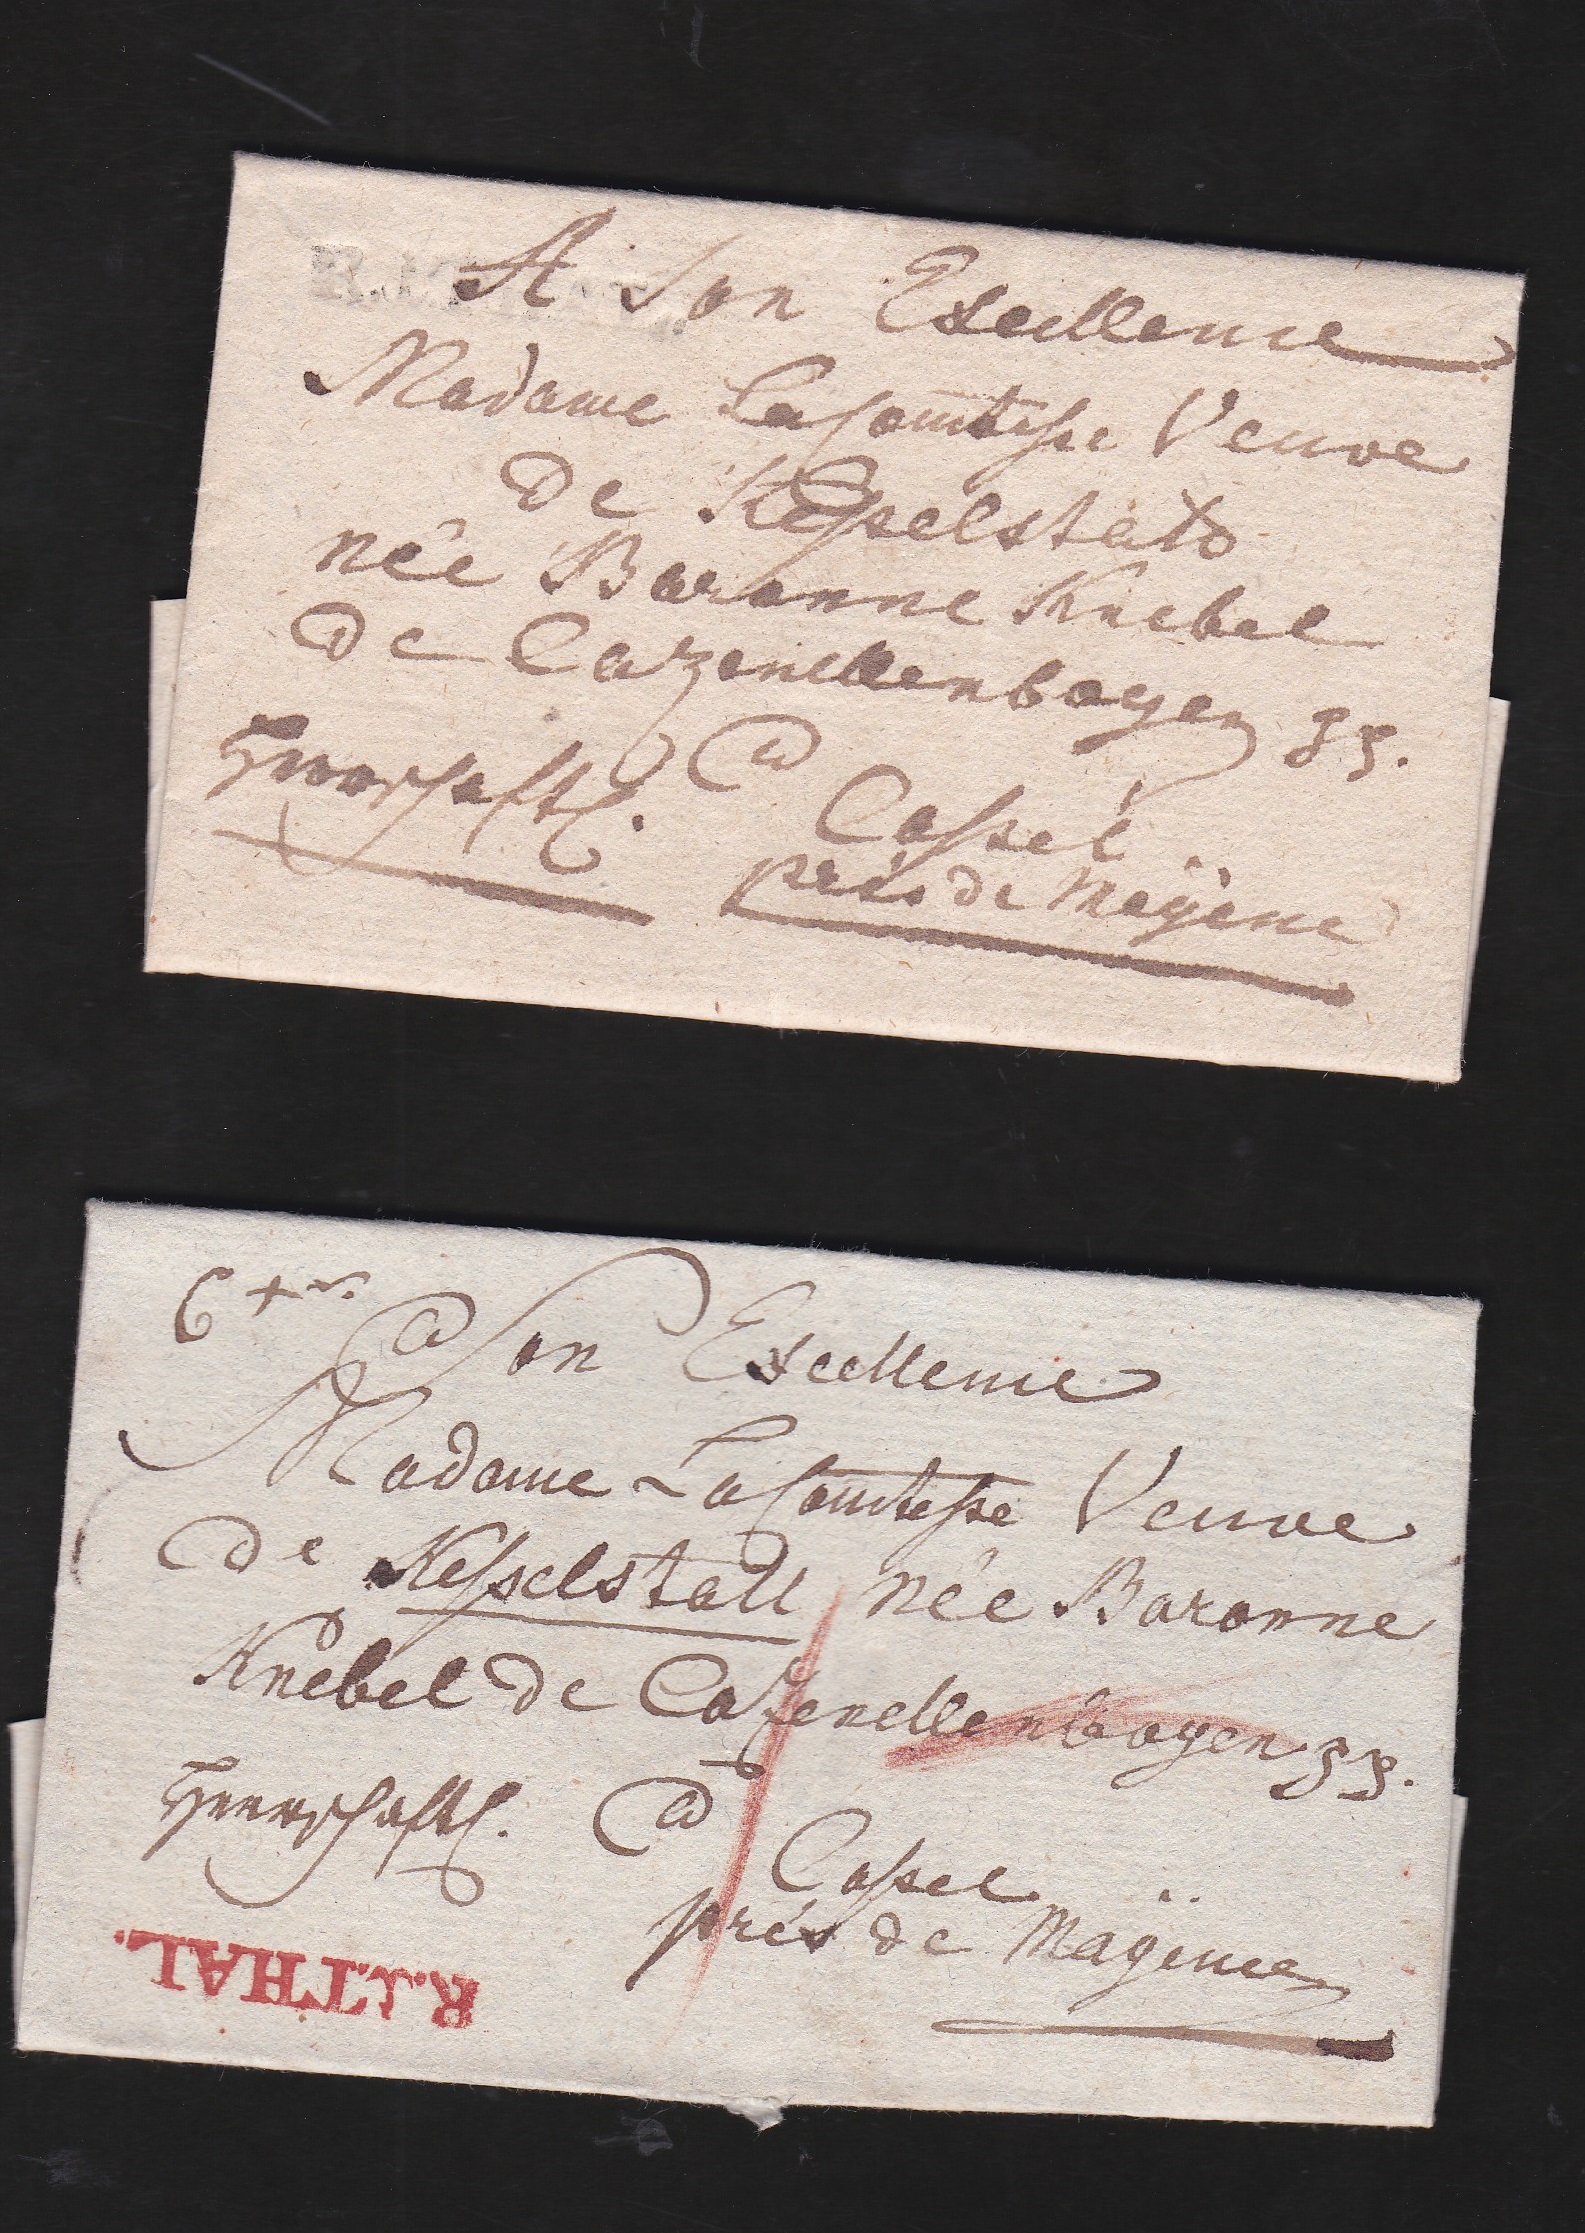 R.I.THAL.
A Son Excellence
Madame La Comtesse Veuve
de Kesselstadt
née Baronne Knebel
de Cazenellenbogen
Herrschaftl. a
Cassel
près de Mayence
6 xr.
a Son Excellence
Madame La Comtesse Veuve
de Kesselstatt née Baronne
Knebel de Cazenellenbogen
Herrschaftl. a
Cassel
près de Mayence
R.I.THAL.